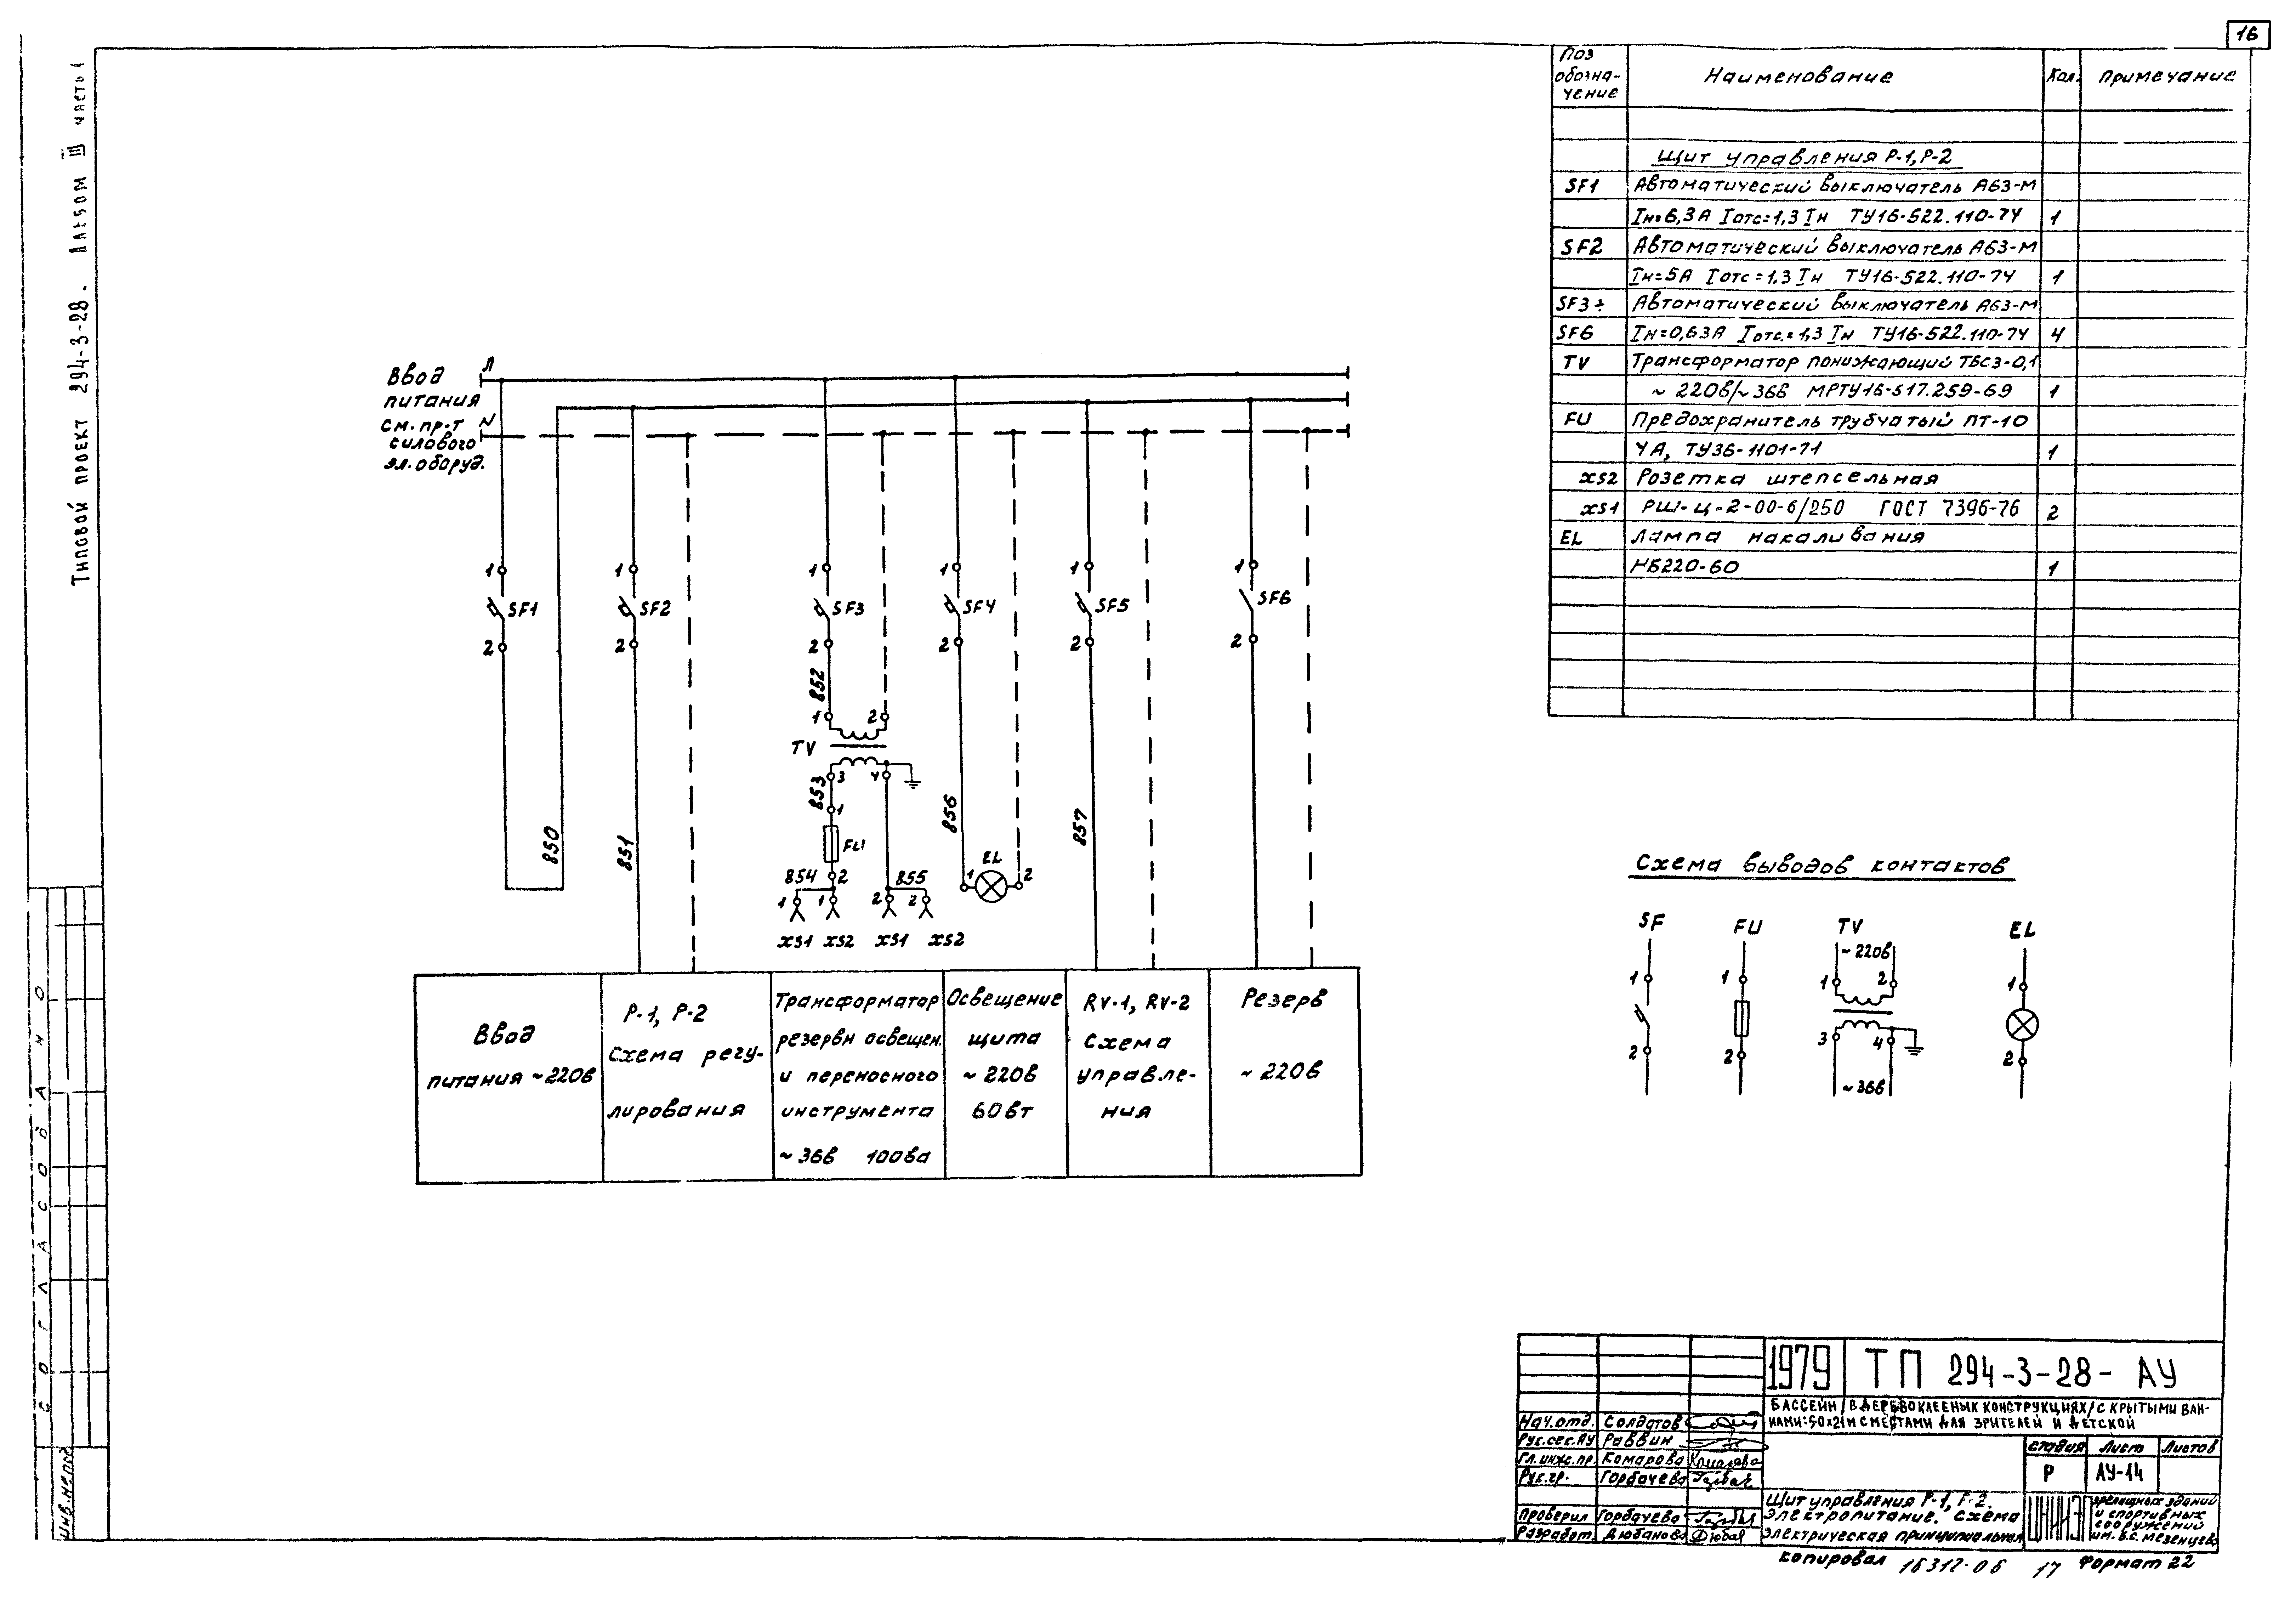 16
Типовой проект 294-3-28. Альбом III часть 1
Поз обозна-чение
Наименование
Кол.
Примечание
Щит управления Р-1, Р-2
SF1 Автоматический выключатель А63-М
Iн=6,3А Iотс=1,3 Iн ТУ16-522.110-74 1
SF2 Автоматический выключатель А63-М
Iн=5А Iотс=1,3 Iн ТУ16-522.110-74 1
SF3÷ Автоматический выключатель А63-М
SF6 Iн=0,63А Iотс.=1,3 Iн ТУ16-522.110-74 4
TV Трансформатор понижающий ТБСЗ-0,1
~ 220в/~36в МРТУ16-517.259-69 1
FU Предохранитель трубчатый ПТ-10
4А, ТУ36-1101-71 1
XS2 Розетка штепсельная
XS1 РШ-Ц-2-00-6/250 ГОСТ 7396-76 2
EL Лампа накаливания
НБ220-60 1
Ввод
питания
см. пр-т
силового
эл. оборуд.
Л
N
1 1 1 1 1 1
SF1 SF2 SF3 SF4 SF5 SF6
2 2 2 2 2 2
852
1 2
TV
3 4
853
1
FU
850 851 856 857
EL
1 2
854 2 855
1 1 2 2
XS1 XS2 XS1 XS2
Ввод
питания ~220в
Р-1, Р-2
Схема регу-
лирования
Трансформатор
резервн освещен.
и переносного
инструмента
~36в 100ва
Освещение
щита
~ 220в
60вт
RV-1, RV-2
Схема
управле-
ния
Резерв
~ 220в
Схема выводов контактов
SF FU TV EL
~220в
1 1 1 2 1
2 2 3 4 2
~36в
СОГЛАСОВАНО
ИНВ. № подл
1979 ТП 294-3-28- АУ
БАССЕЙН /В ДЕРЕВОКЛЕЕНЫХ КОНСТРУКЦИЯХ/ С КРЫТЫМИ ВАН-
НАМИ: 50х21М С МЕСТАМИ ДЛЯ ЗРИТЕЛЕЙ И ДЕТСКОЙ
Нач.отд. Солдатов
Рук.сек.АУ Раввин
Гл.инж.пр. Комарова
Рук.гр. Горбачева
Проверил Горбачева
Разработ. Дюбанова
стадия Лист Листов
Р АУ-14
Щит управления Р-1, Р-2.
Электропитание. Схема
электрическая принципиальная
ЦНИИЭП
зрелищных зданий
и спортивных
сооружений
им. Б.С. Мезенцева
Копировал 16312-06 17 Формат 22